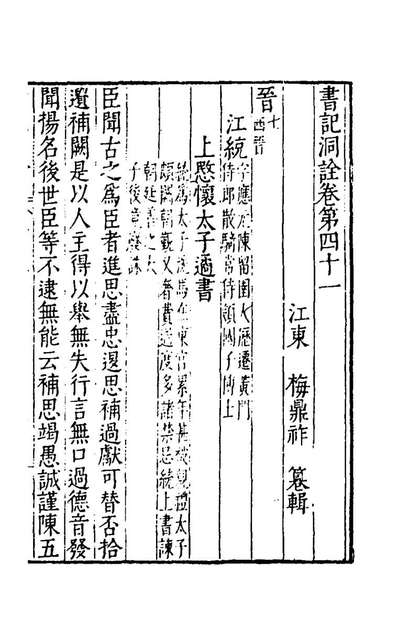 書記洞詮卷第四十一
江東 梅鼎祚 纂輯
晉七 西晉
江統字應元陳留圉人歷遷黃門
侍郎散騎常侍領國子博士
上愍懷太子遹書
統爲太子洗馬在東宮累年甚被親禮太子
頗闕朝覲又奢費過度多諸禁忌統上書諫
朝廷善之太
子後竟廢
臣聞古之爲臣者進思盡忠退思補過獻可替否拾
遺補闕是以人主得以舉無失行言無口過德音發
聞揚名後世臣等不逮無能云補思竭愚誠謹陳五